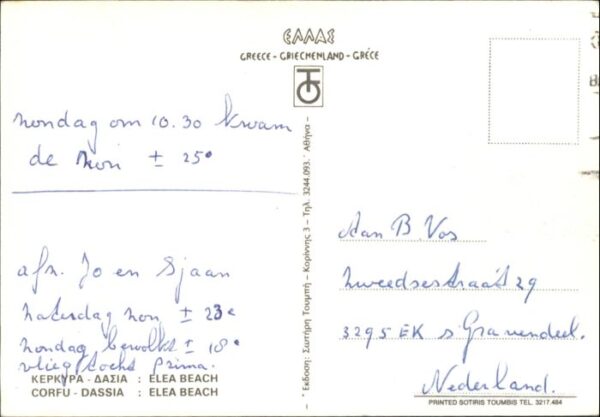 ΕΛΛΑΣ
GREECE - GRIECHENLAND - GRÈCE
Zondag om 10.30 kwam
de zon ± 25°
afz. Jo en Sjaan
Zaterdag zon ± 23°
Zondag bewolkt ± 18°
vliegtocht prima.
ΚΕΡΚΥΡΑ - ΔΑΣΙΑ : ELEA BEACH
CORFU - DASSIA : ELEA BEACH
Έκδοση: Σωτήρη Τουμπή – Κορίννης 3 – Τηλ. 3244.093. Αθήνα –
Aan B. Vos
Zweedsestraat 29
3295 EK s Gravendeel.
Nederland.
PRINTED SOTIRIS TOUMBIS TEL. 3217.484